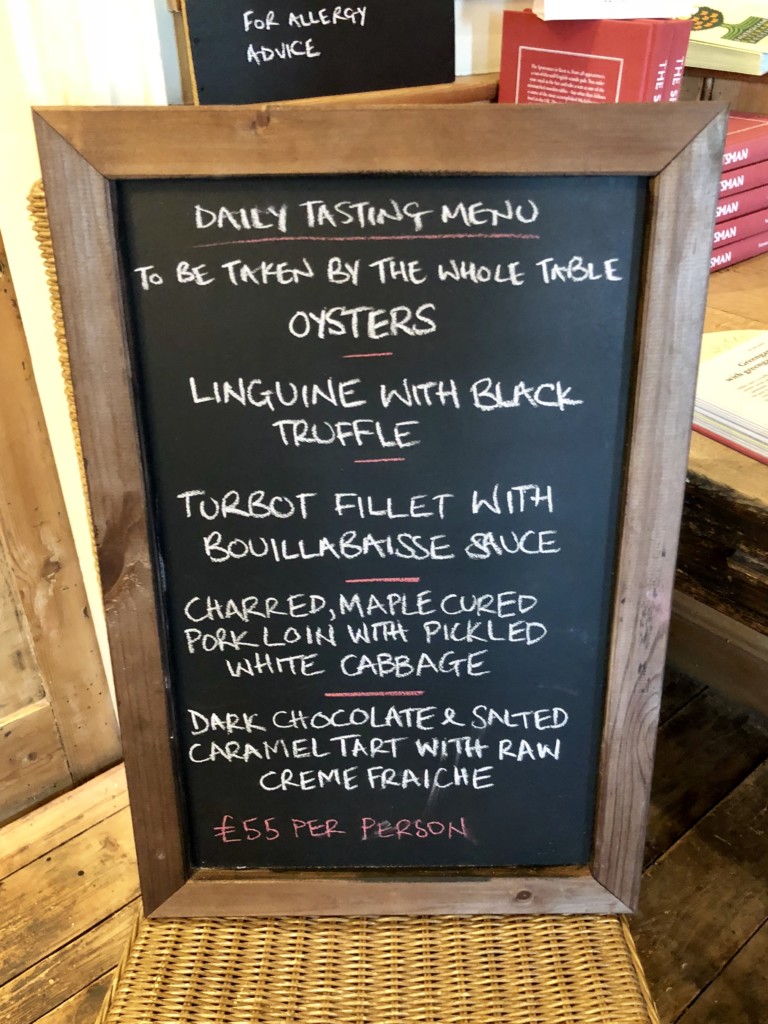 FOR ALLERGY
ADVICE
DAILY TASTING MENU
TO BE TAKEN BY THE WHOLE TABLE
OYSTERS
LINGUINE WITH BLACK
TRUFFLE
TURBOT FILLET WITH
BOUILLABAISSE SAUCE
CHARRED, MAPLE CURED
PORK LOIN WITH PICKLED
WHITE CABBAGE
DARK CHOCOLATE & SALTED
CARAMEL TART WITH RAW
CREME FRAICHE
£55 PER PERSON
THE S
THE S
TSMAN
SMAN
SMAN
SMAN
SMAN